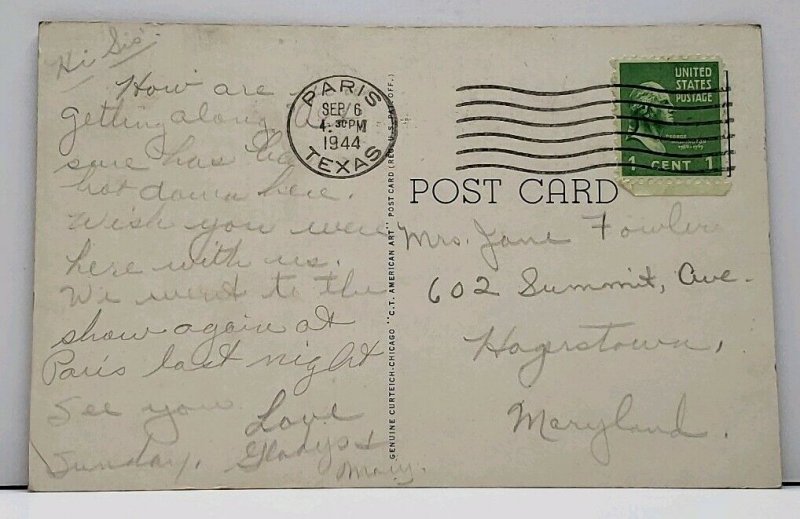 Hi Sis.
How are
getting along
sure has
hot down here.
Wish you were
here with us.
We went to the
show again at
Paris last night
See you
Sunday.
Love
Gladys &
Mary.
PARIS
SEP 6
4:30 PM
1944
TEXAS
GENUINE CURTEICH-CHICAGO "C.T. AMERICAN ART" POST CARD (REG. U.S. PAT. OFF.)
UNITED
STATES
POSTAGE
GEORGE
WASHINGTON
1 CENT 1
POST CARD
Mrs. Jane Fowler
602 Summit, Ave.
Hagerstown,
Maryland.